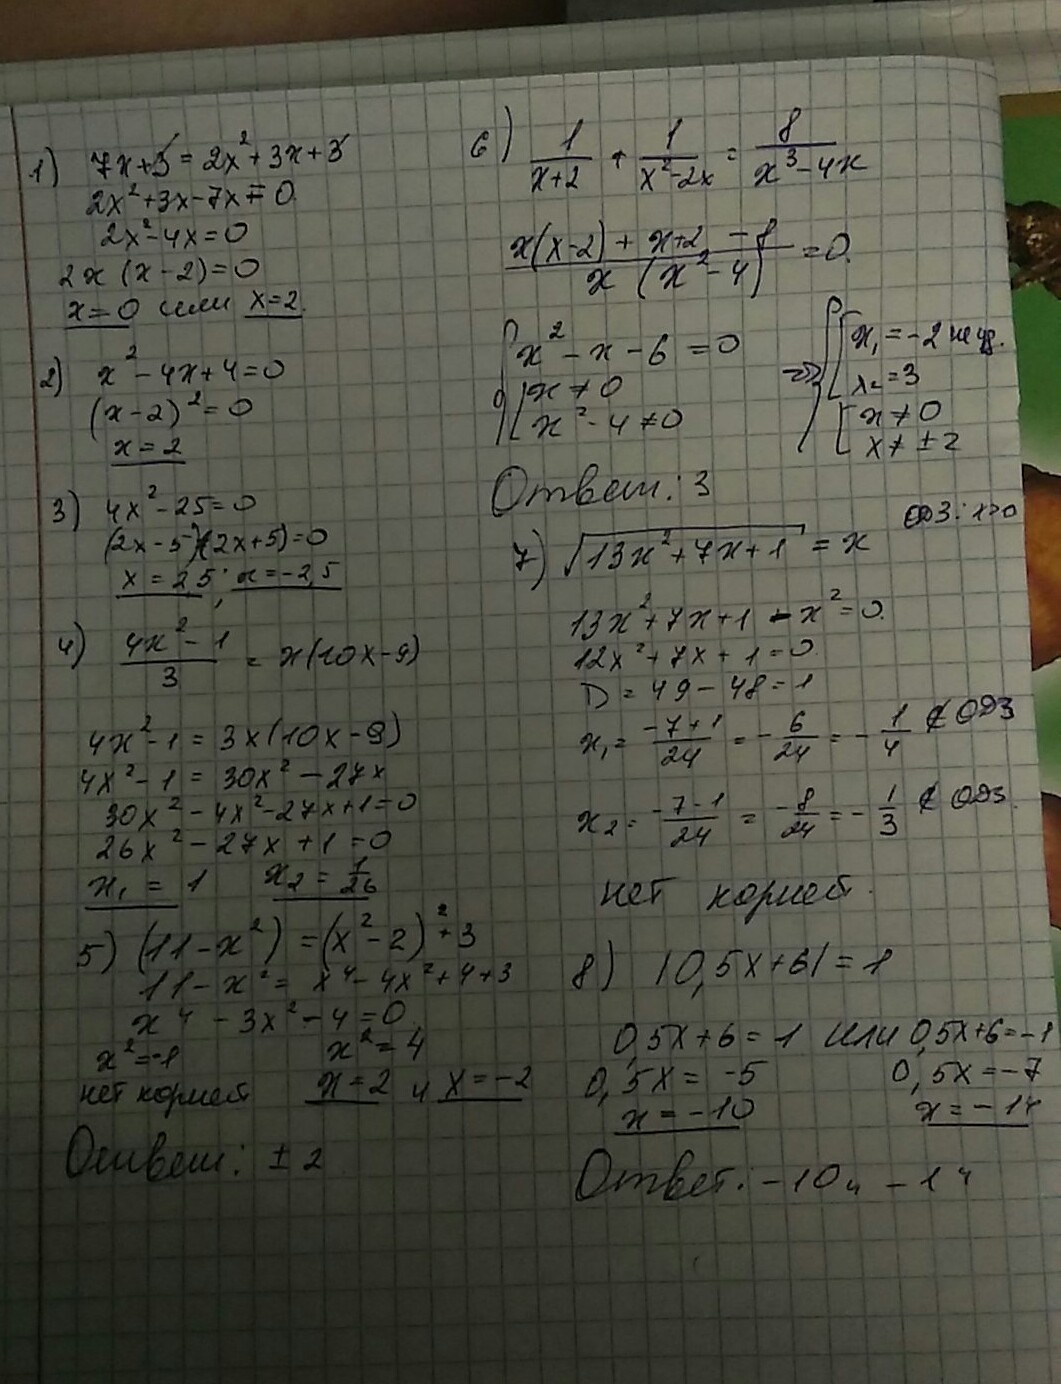 1) 7x+3 = 2x²+3x+3
2x²+3x-7x=0
2x²-4x=0
2x(x-2)=0
x=0 или x=2
2) x²-4x+4=0
(x-2)²=0
x=2
3) 4x²-25=0
(2x-5)(2x+5)=0
x=2,5; x=-2,5
4) (4x²-1)/3 = x(10x-9)
4x²-1 = 3x(10x-9)
4x²-1 = 30x²-27x
30x²-4x²-27x+1=0
26x²-27x+1=0
x₁=1 x₂=1/26
5) (11-x²)=(x²-2)²+3
11-x²=x⁴-4x²+4+3
x⁴-3x²-4=0
x²=-1 x²=4
нет корней x=2 и x=-2
Ответ: ±2
6) 1/(x+2) + 1/(x²-2x) = 8/(x³-4x)
(x(x-2)+x+2-8)/(x(x²-4)) = 0
x²-x-6=0
x≠0
x²-4≠0
=> x₁=-2 не уд.
x₂=3
x≠0
x≠±2
Ответ: 3
7) √(13x²+7x+1) = x ОДЗ: x>0
13x²+7x+1-x²=0
12x²+7x+1=0
D=49-48=1
x₁=(-7+1)/24=-6/24=-1/4 ∉ ОДЗ
x₂=(-7-1)/24=-8/24=-1/3 ∉ ОДЗ
нет корней
8) |0,5x+6|=1
0,5x+6=1 или 0,5x+6=-1
0,5x=-5 0,5x=-7
x=-10 x=-14
Ответ: -10 и -14